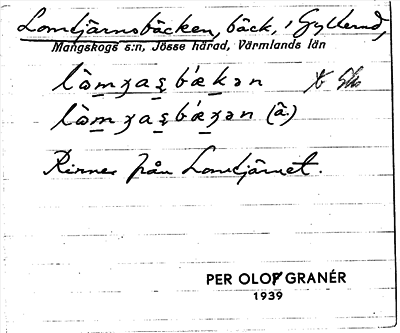 Lomtjärnsbäcken, bäck, i Gyllerud,
Mangskogs s:n, Jösse härad, Värmlands län
bækən
(ä.)
Rinner från Lomtjärnet.
PER OLOF GRANÉR
1939